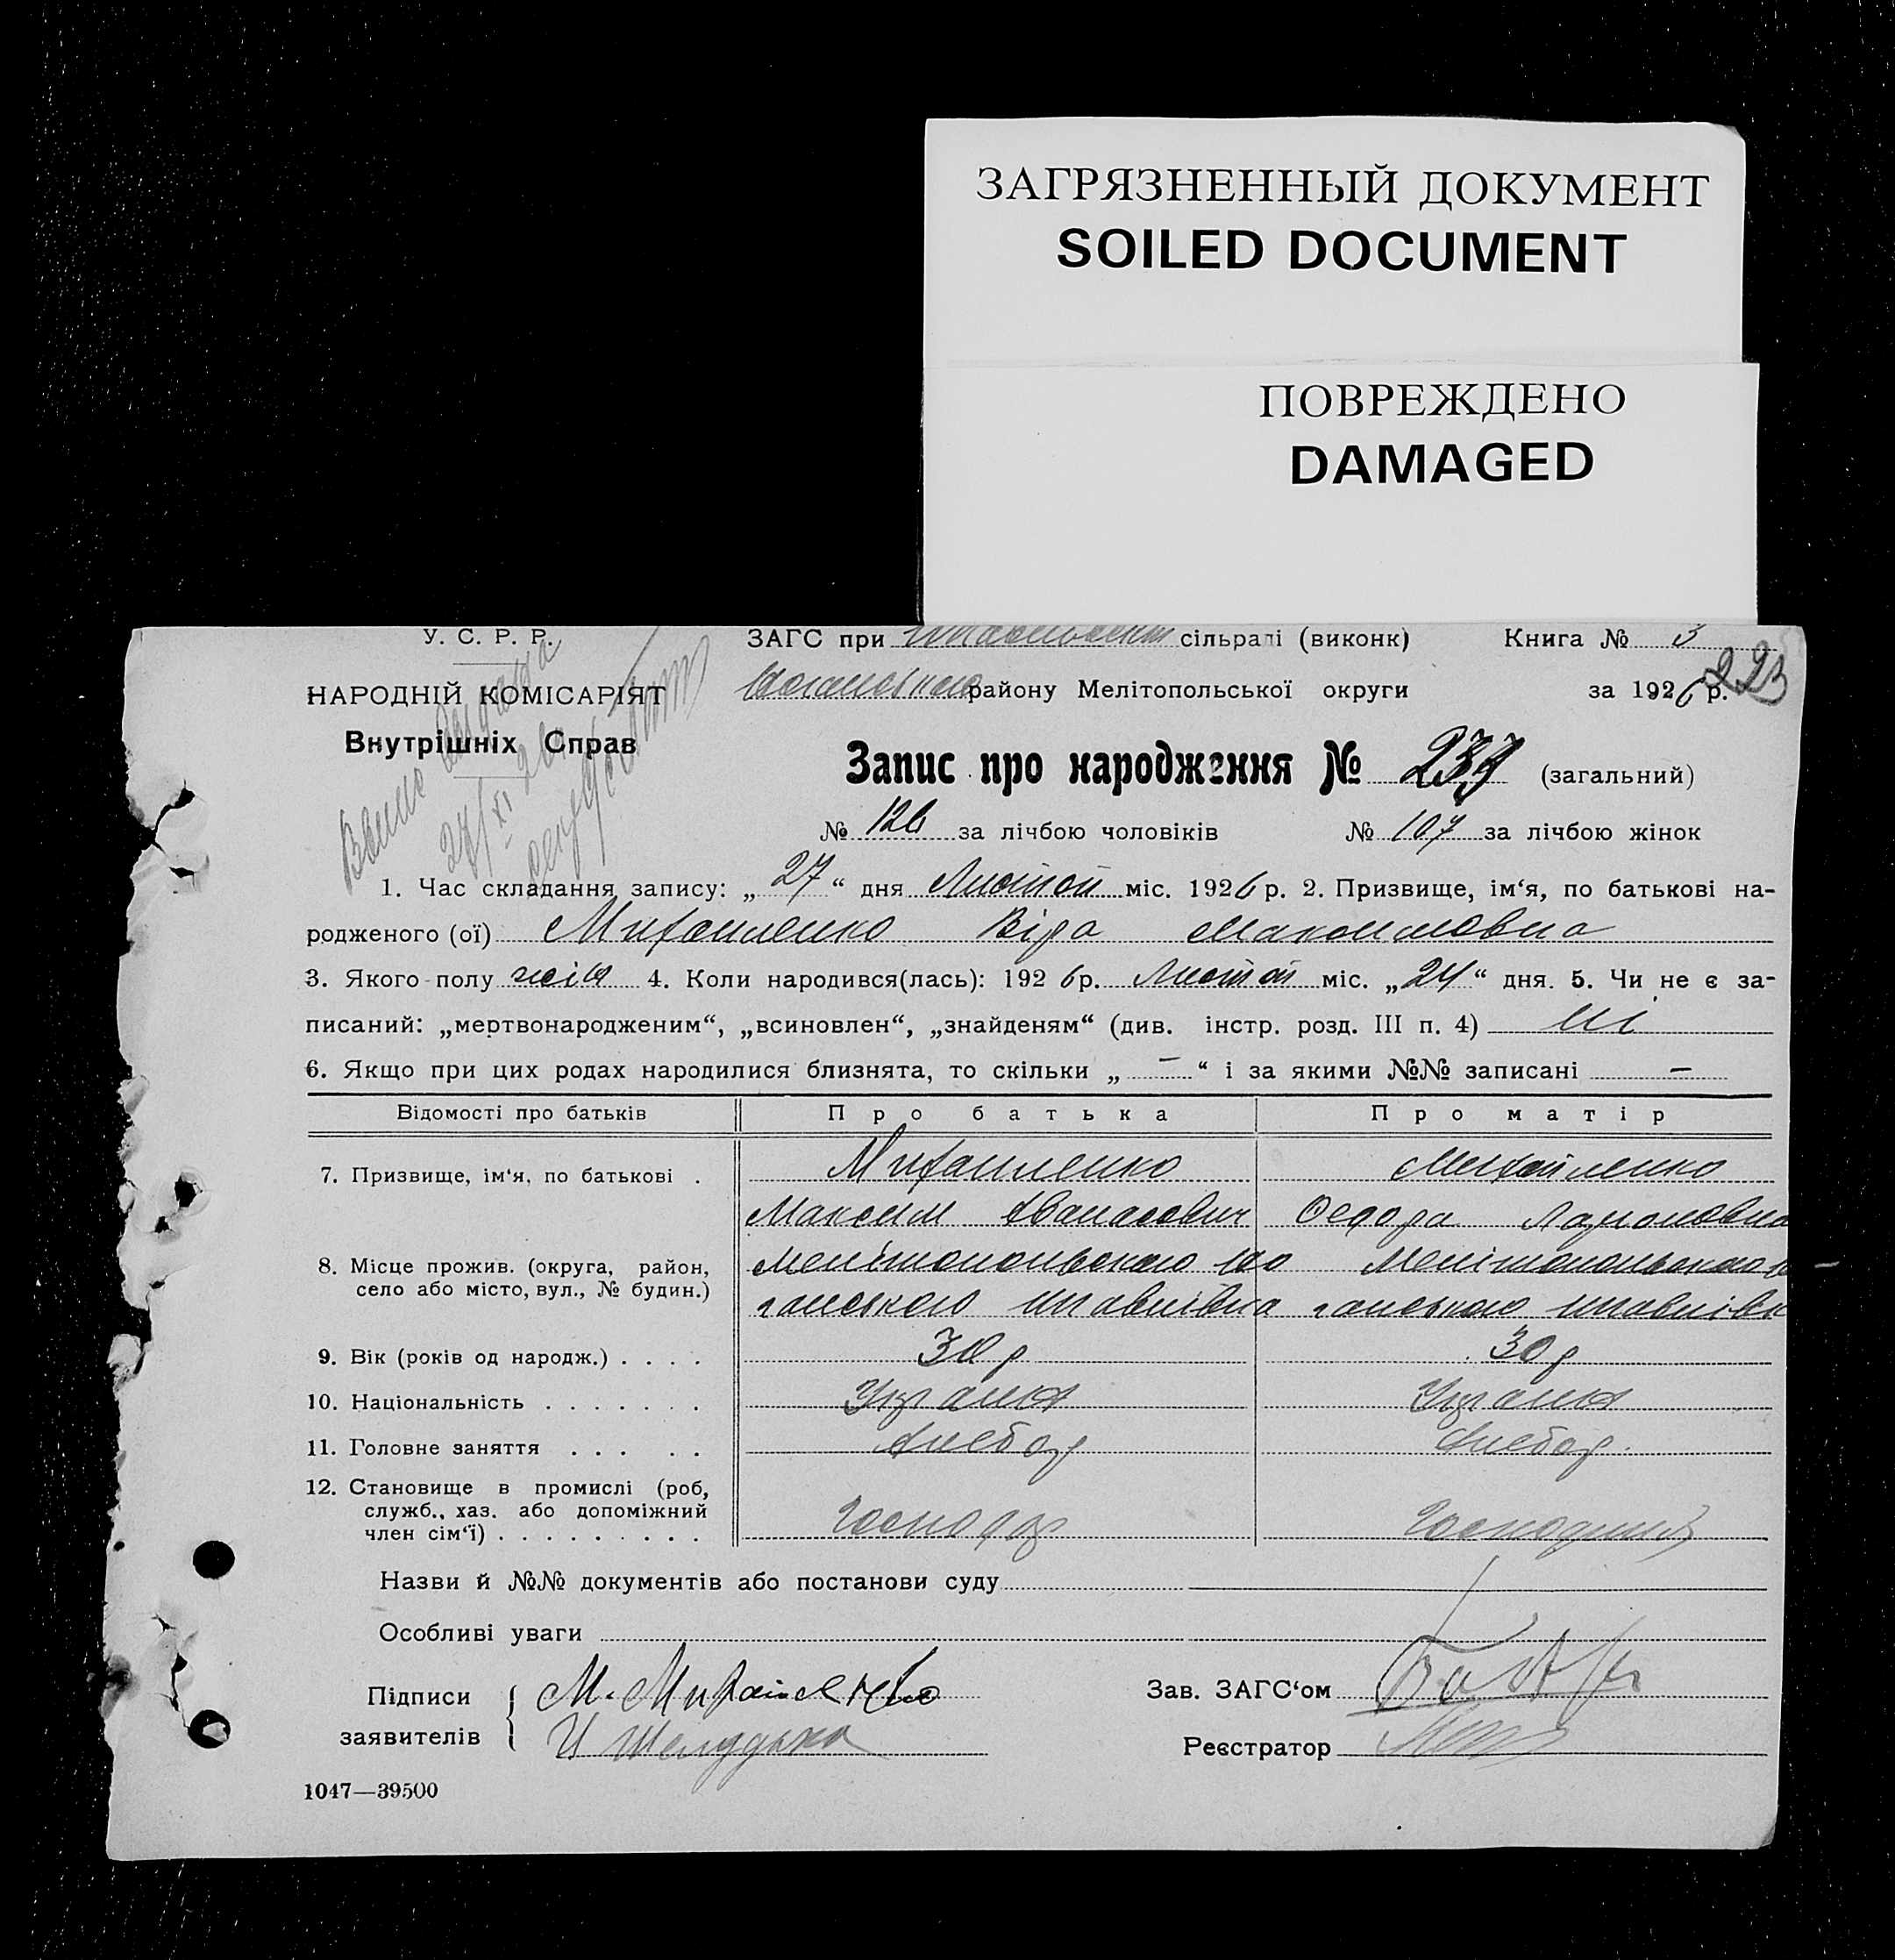 ЗАГРЯЗНЕННЫЙ ДОКУМЕНТ
SOILED DOCUMENT
ПОВРЕЖДЕНО
DAMAGED
У. С. Р. Р.
ЗАГС при сільраді (виконк) Книга № 3
223
НАРОДНІЙ КОМІСАРІЯТ
району Мелітопольської округи за 1926 р.
Внутрішніх Справ
Запис про народження № (загальний)
№ 126 за лічбою чоловіків № 107 за лічбою жінок
1. Час складання запису: „27“ дня Лютой міс. 1926 р. 2. Призвище, ім‘я, по батькові на-
родженого (ої) Михайленко Віра Максимовна
3. Якого полу жін 4. Коли народився(лась): 1926 р. Лютой міс. „24“ дня. 5. Чи не є за-
писаний: „мертвонародженим“, „всиновлен“, „знайденям“ (див. інстр. розд. III п. 4) ні
6. Якщо при цих родах народилися близнята, то скільки „ — “ і за якими №№ записані —
Відомості про батьків Про батька Про матір
7. Призвище, ім‘я, по батькові . Михайленко Михайленко
Максим Афанасович Федора Ларионовна
8. Місце прожив. (округа, район, Мелітопольского Мелітопольского
село або місто, вул., № будин.)
9. Вік (років од народж.) . . . . 30 р 30 р
10. Національність . . . . . . . Украін Украін
11. Головне заняття . . . . . Хлебор Хлебор.
12. Становище в промислі (роб,
служб., хаз. або допоміжний
член сім‘ї) . . . . . . . . . Господар
Назви й №№ документів або постанови суду
Особливі уваги
Підписи М. Михайленко Зав. ЗАГС‘ом
заявителів Реєстратор
1047—39500